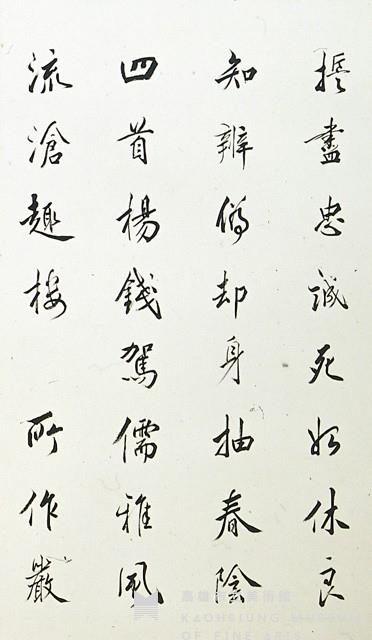 盡忠誠死始休良
知辨偽却身抽春陰
四首楊錢駕儒雅風
流滄趣樓 所作嚴
高雄市立美術館
KAOHSIUNG MUSEUM
OF FINE ARTS